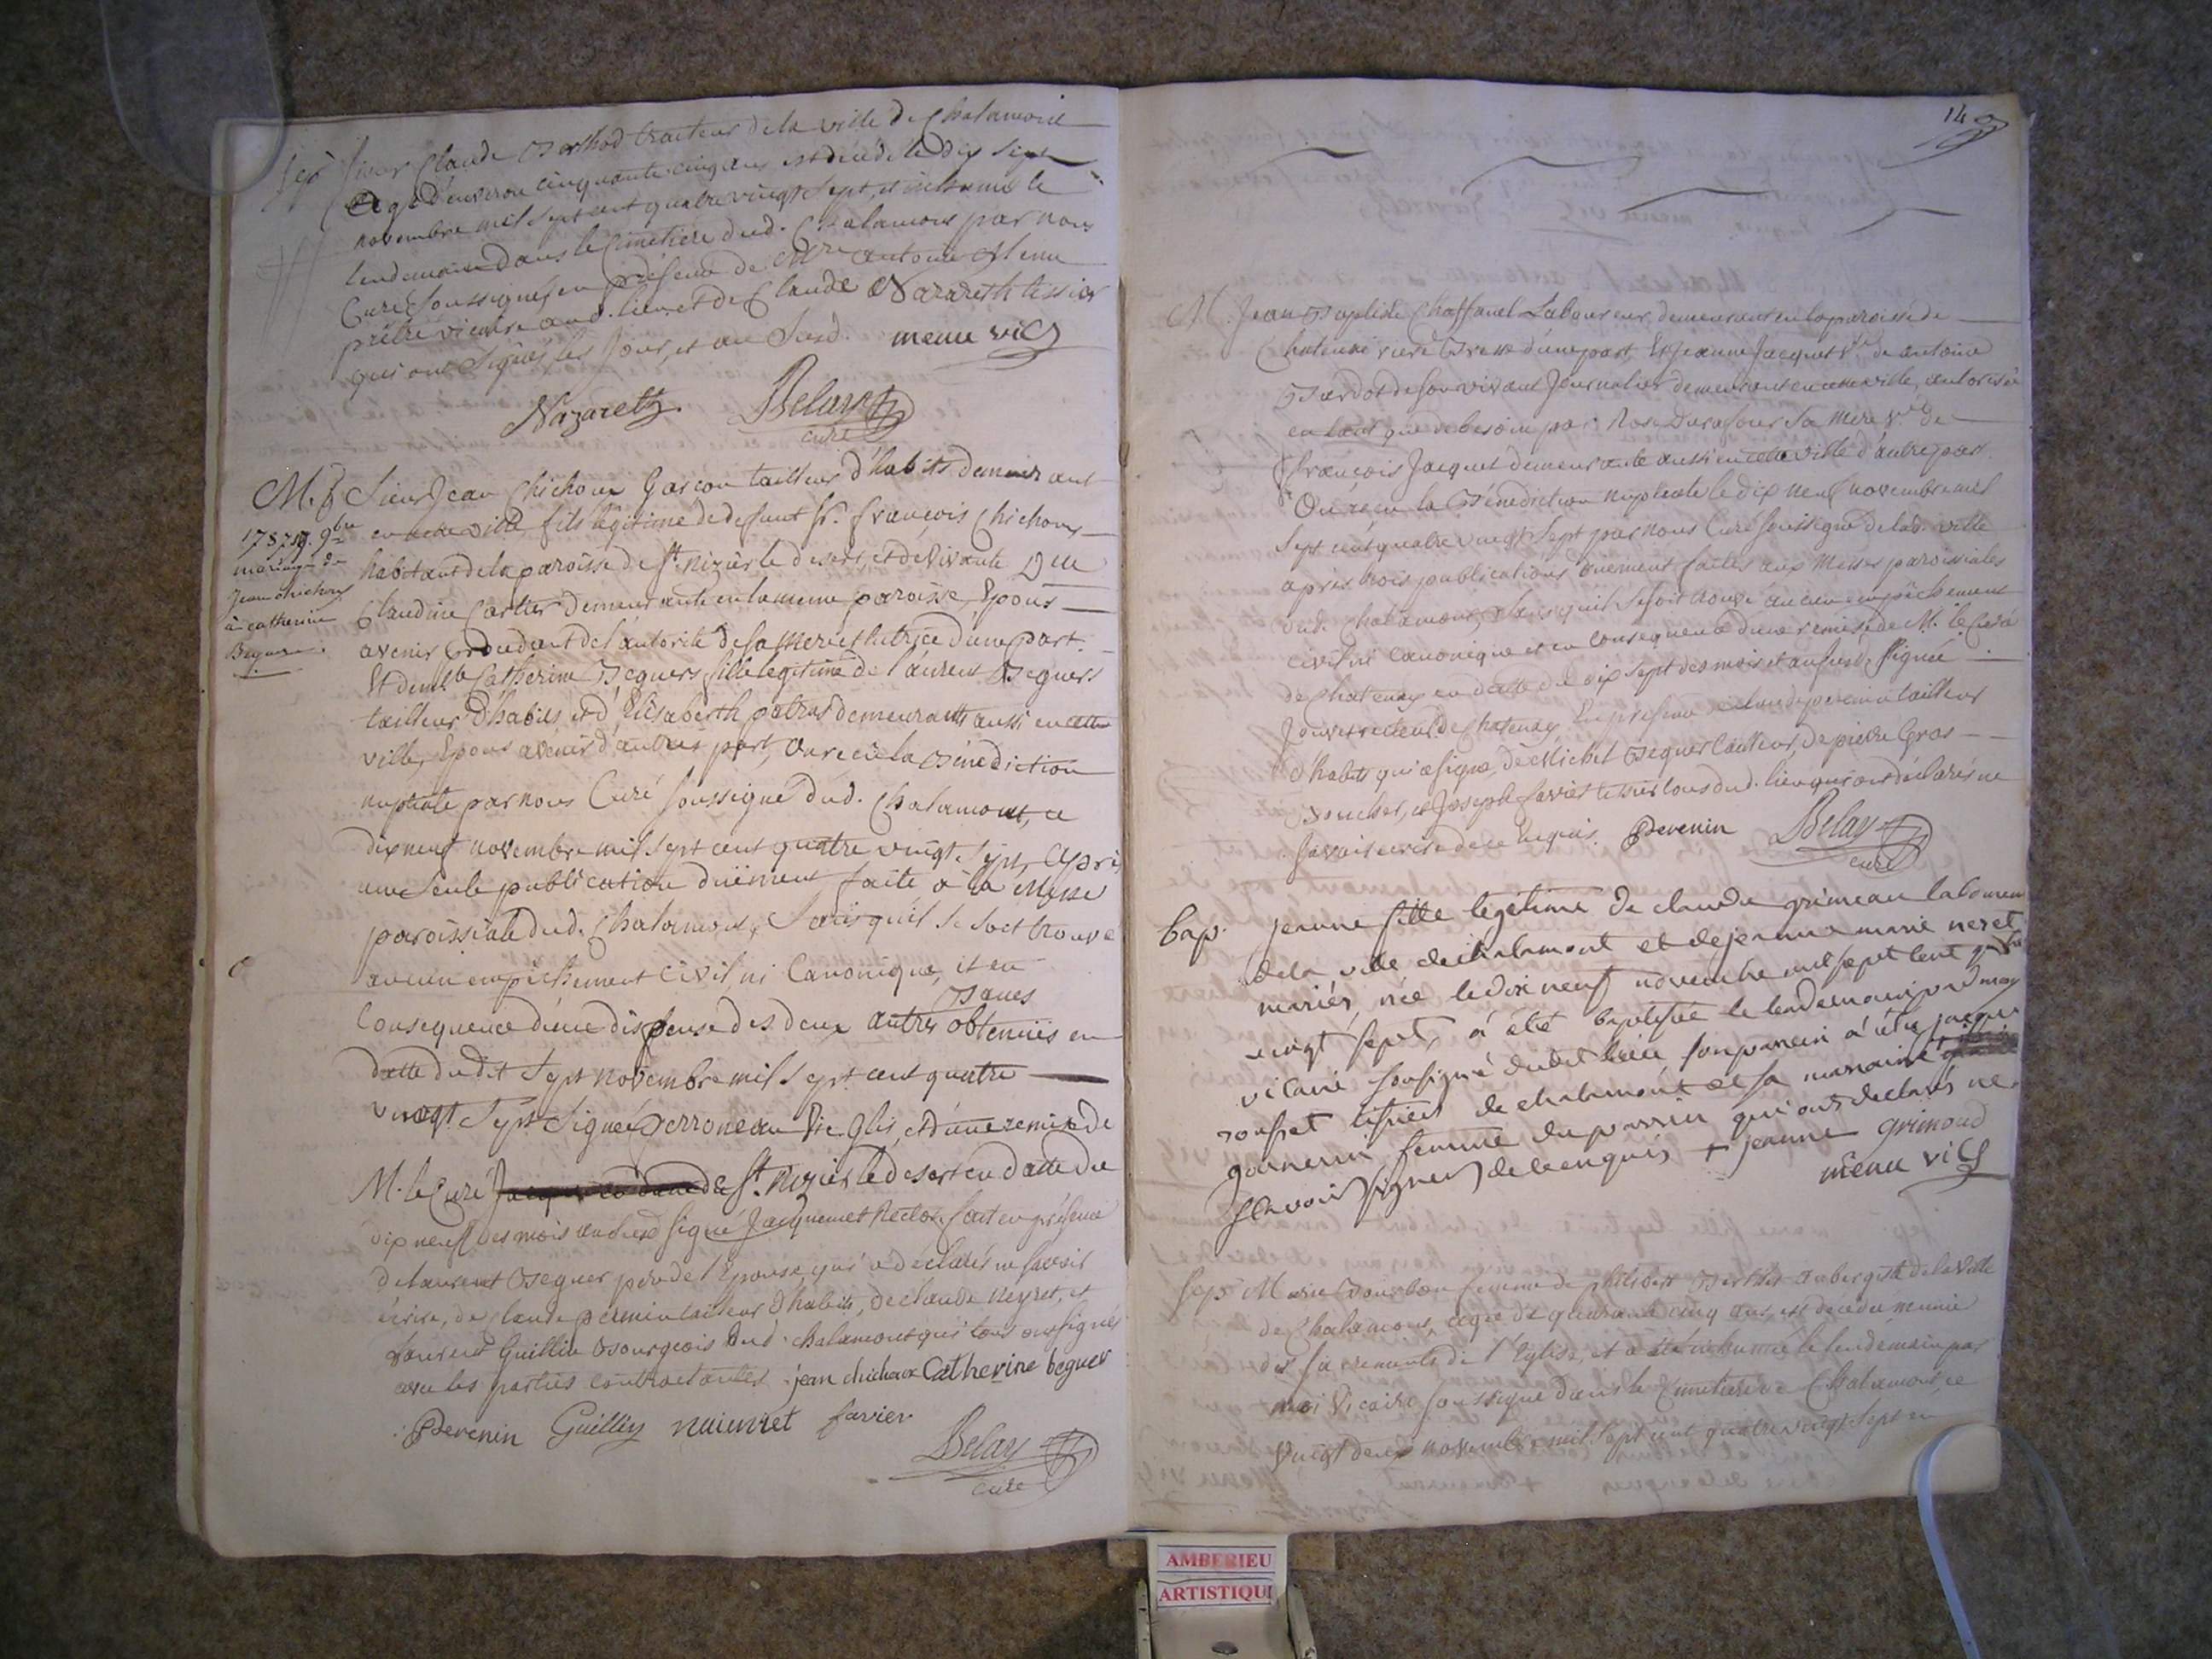 Sep. Sieur Claude Berthod traiteur de la ville de Chalamont
agé d'environ cinquante cinq ans est décédé le dix sept
novembre mil sept cent quatre vingt sept, et inhumé le
lendemain dans le Cimetiere dud. Chalamont par nous
Curé soussigné, en présence de Mre antoine Menu
prêtre vicaire aud. lieu, et de Claude Nazareth tissier
qui ont signés les jour, et an susd. menu vic
Nazareth. Belay
curé
M. Sieur Jean Chichoux Garçon tailleur d'habits demeurant
en cette ville fils légitime de defunt Sr. françois Chichoux
habitant de la paroisse de St. nizier le desert, et de vivante Dlle
Claudine Cartier demeurante en la meme paroisse, Epoux
avenir procedant de l'autorité de sa mere et tutrice d'une part.
Et demlle Catherine Beguer fille legitime de laurent Beguer
tailleur d'habits, et d'Elisabeth patras demeurants aussi en cette
ville, Epouse avenir d'autre part, ont recu la Bénédiction
nuptiale par nous Curé soussigné dud. Chalamont, ce
dix neuf novembre mil sept cent quatre vingt sept, après
une seule publication duëment faite à la Messe
paroissiale dud. Chalamont, sans qu'il se soit trouvé
aucun empêchement Civil, ni Canonique, et en
Bancs
Consequence d'une dispense des deux autres obtenuës en
datte du dit sept novembre mil sept cent quatre
vingt sept signée Perroneau Vic. Gl, et d'une remise de
M. le Curé de St. Nizier le desert en datte du
dix neuf des mois an susd. signé Jacquemet Recteur fait en présence
de laurent Beguer pere de l'Epouse qui a déclaré ne savoir
écrire, de claude perenin tailleur d'habits, de claude neyret, et
laurent Guillin Bourgeois dud. chalamont qui tous ont signés
avec les parties contractantes. jean chichoux Catherine beguer
Perenin Guillin favier
Belay
curé
1787 19. 9bre
mariage de
Jean chichoux
à catherine
Beguer.
14
M. Jean Baptiste Chaffanel Laboureur demeurant en la paroisse de
Chatenai d'une part, Et Jeanne Jacquet Ve de antoine
de son vivant Journalier demeurant en cette ville, autorisée
en tant que de besoin par Rose Durafour sa mere Ve de
françois Jacquet demeurante aussi en cette ville d'autre part.
Ont recu la Bénédiction nuptiale le dix neuf novembre mil
sept cent quatre vingt sept par nous Curé soussigné de lad. ville
après trois publications duëment faites aux Messes paroissiales
dud. Chalamont, sans qu'il se soit trouvé aucun empêchement
civil ni canonique et en consequence d'une remise de M. le Curé
de Chatenay en datte du dix sept des mois et an susd. signée
recteur de Chatenay, En présence claude perenin tailleur
d'habits qui a signé, de Michel Beguer tailleur, de pierre Gras
Boucher, et Joseph favier tissier tous dud. lieu qui ont déclarés ne
savoir ecrire de ce enquis. Perenin Belay
curé
bap. jeanne fille légitime de claude grimeau laboureur
de la ville de chalamont et de jeanne marie neret
mariés, née le dix neuf novembre mil sept cent quatre
vingt sept, à été baptisée le lendemain par moy
vicaire soussigné dudit lieu son parrain à été jacque
tissier de chalamont et sa marraine
femme du parrain qui ont déclarés ne
scavoir signer de ce enquis + jeanne grimoud
menu vic
Sep. Marie Bourbon femme de philibert Berthet aubergiste de la ville
de Chalamont, agée de quarante cinq ans, est décédée munie
des sacrements de l'Eglise, et a été inhumée le lendemain par
moi Vicaire soussigné dans le Cimetiere de Chalamont, ce
vingt deux novembre mil sept cent quatre vingt sept en
AMBERIEU
ARTISTIQU